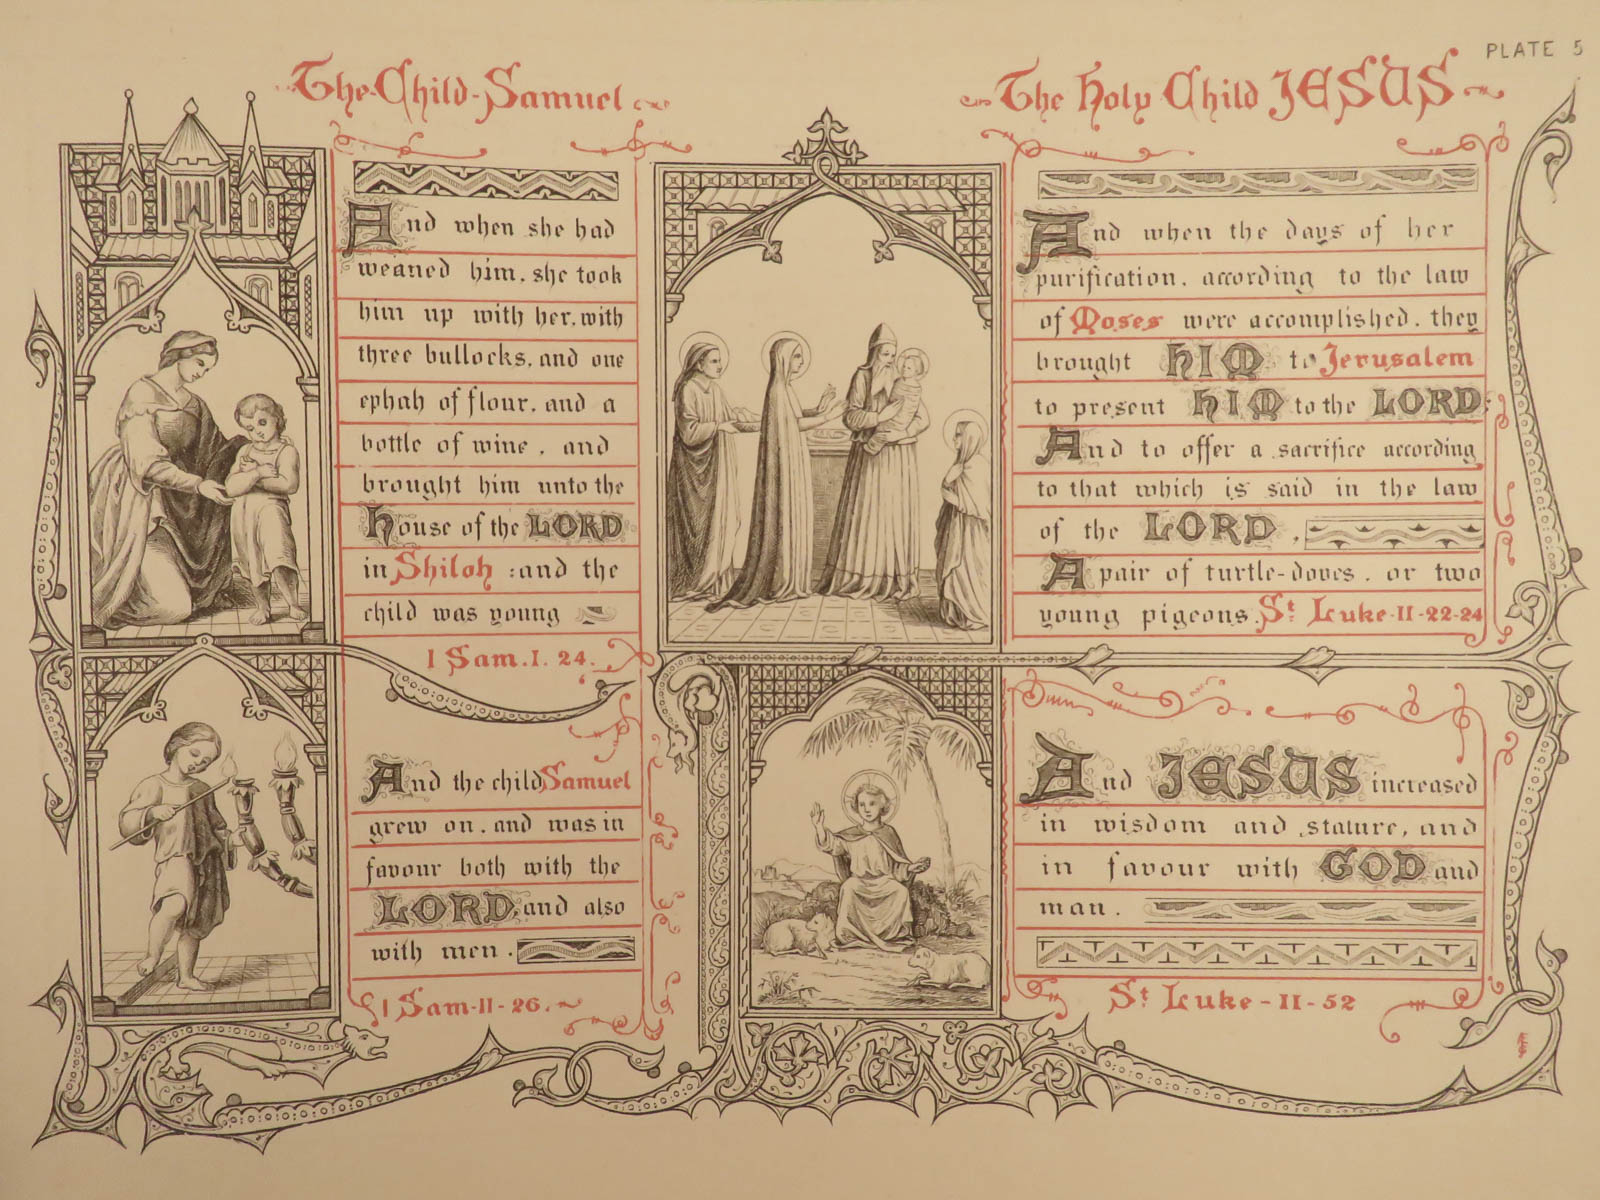 PLATE 5
The Child Samuel
And when she had
weaned him, she took
him up with her, with
three bullocks, and one
ephah of flour, and a
bottle of wine, and
brought him unto the
House of the LORD
in Shiloh : and the
child was young
1 Sam. I. 24.
And the child Samuel
grew on, and was in
favour both with the
LORD, and also
with men.
1 Sam-II-26.
The Holy Child JESUS
And when the days of her
purification, according to the law
of Moses were accomplished, they
brought HIM to Jerusalem
to present HIM to the LORD:
And to offer a sacrifice according
to that which is said in the law
of the LORD,
A pair of turtle-doves, or two
young pigeons. St. Luke-II-22-24
And JESUS increased
in wisdom and stature, and
in favour with GOD and
man.
St. Luke-II-52